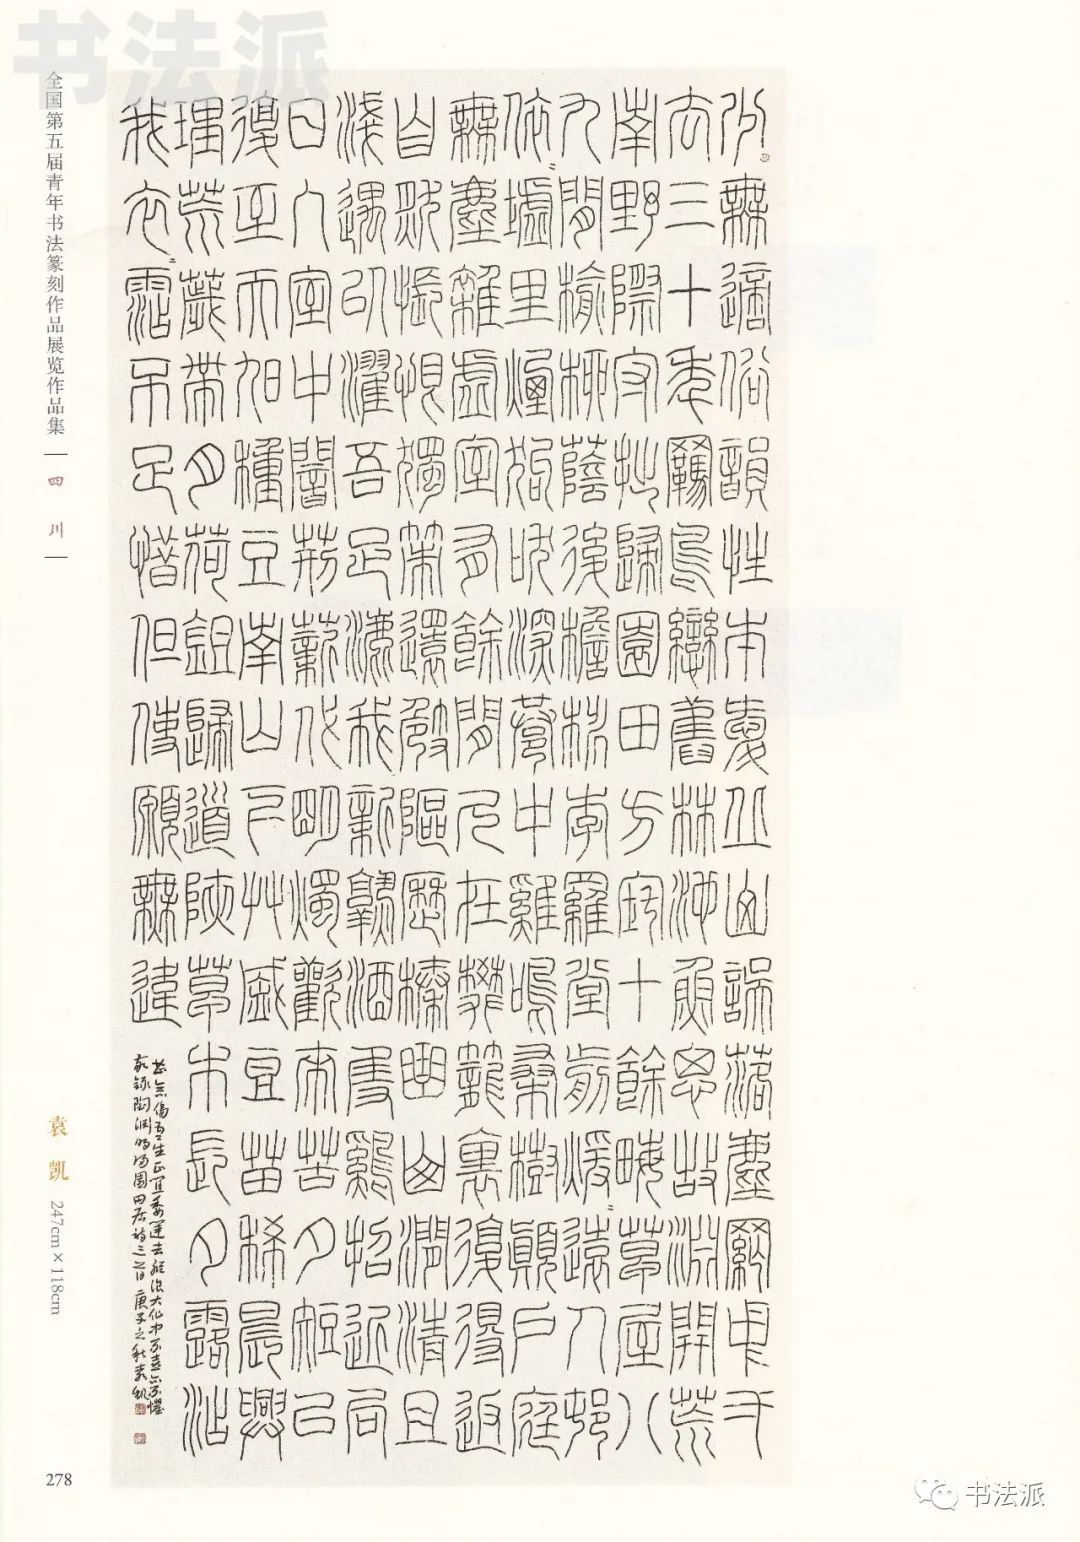 书法派
全国第五届青年书法篆刻作品展览作品集
四川
少無適俗韻性本愛丘山誤落塵網中一
去三十年羈鳥戀舊林池魚思故淵開荒
南野際守拙歸園田方宅十餘畝草屋八
九間榆柳蔭後檐桃李羅堂前曖〻遠人村
依〻墟里煙狗吠深巷中雞鳴桑樹顛戶庭
無塵雜虛室有餘閒久在樊籠裏復得返
自然悵恨獨策還崎嶇歷榛曲山澗清且
淺遇以濯吾足漉我新熟酒隻雞招近局
日入室中闇荊薪代明燭歡來苦夕短已
復至天旭種豆南山下草盛豆苗稀晨興
理荒穢帶月荷鋤歸道狹草木長夕露沾
我衣〻沾不足惜但使願無違
甚念傷吾生正宜委運去縱浪大化中不喜亦不懼
敬錄陶淵明歸園田居詩三首庚子之秋袁凱
袁凯
247cm×118cm
278
书法派